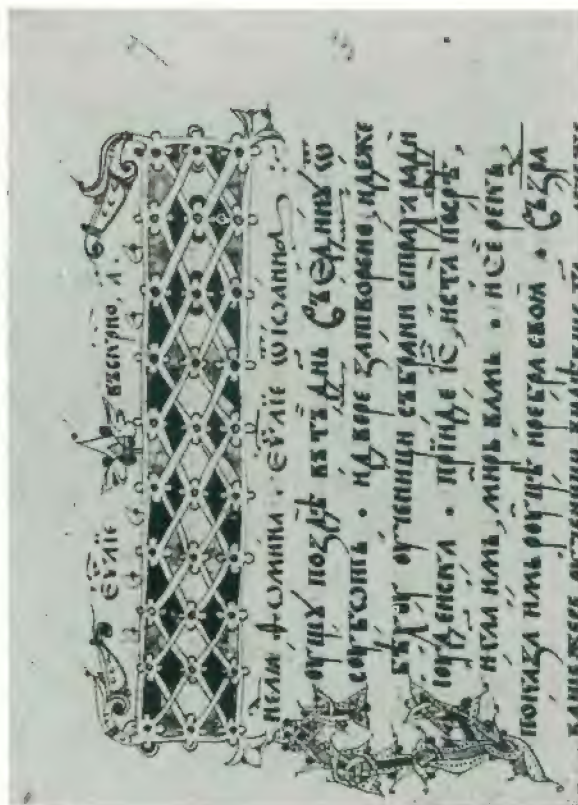 ЕѴЛЇЕ ВЪСКРНО, А҃.
НЕЛѦ ѲѠМИНА : ЕѴЛЇЕ Ѿ ЇѠАННА
ОУЩꙊ ПОЗДѢ ВЪ ТЪ ДН҃Ь СЪЕДИНЫ Ѿ
СОУБѠТЪ • И ДВЕРЕ ЗАТВОРЕНО ИДЕЖЕ
БѢХꙊ ОУЧЕНИЦИ СЪБРАНИ СТРАХА РАДИ
ЇОУДЕИСКА • ПРЇИДЕ ЇС҃, И СТА ПОСРѢ,
И ГЛА ИМЬ, МИРЬ ВАМЬ • И СЕ РЕКЪ,
ПОКАЗА ИМЬ РОУЦѢ И РЕБРА СВОА •